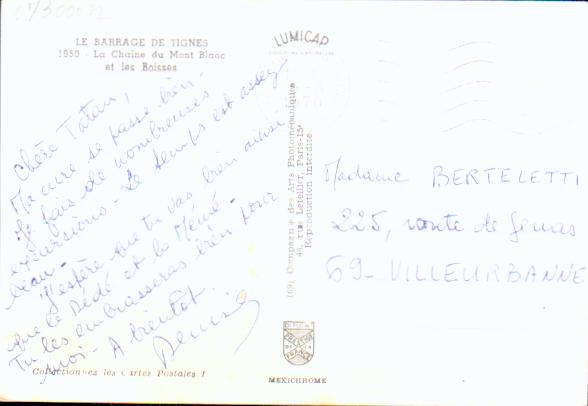 07300022
LE BARRAGE DE TIGNES
1950 - La Chaine du Mont Blanc
et les Boisses
LUMICAP
Chère Tatan,
Ma cure se passe bien -
Je fais de nombreuses
excursions - Le temps est assez
beau -
J'espère que tu vas bien ainsi
que le Dédé et la Mémé -
Tu les embrasseras bien pour
moi - A bientôt.
Denise
Collectionnez les Cartes Postales !
(69) Compagnie des Arts Photomécaniques
44, rue Letellier, Paris-15e
Reproduction interdite
Madame BERTELETTI
225, route de Genas
69 - VILLEURBANNE
MEXICHROME